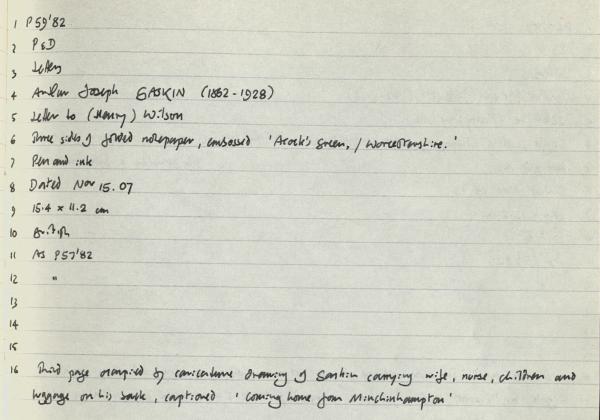 1 P59'82
2 P&D
3 Letters
4 Arthur Joseph GASKIN (1862-1928)
5 Letter to (Henry) Wilson
6 Three sides of folded notepaper, embossed 'Acock's Green, / Worcestershire.'
7 Pen and ink
8 Dated Nov 15.07
9 15.4 x 11.2 cm
10 British
11 As P57'82
12 "
13
14
15
16 Third page occupied by caricature drawing of Gaskin carrying wife, nurse, children and
luggage on his back, captioned 'Coming home from Minchinhampton'